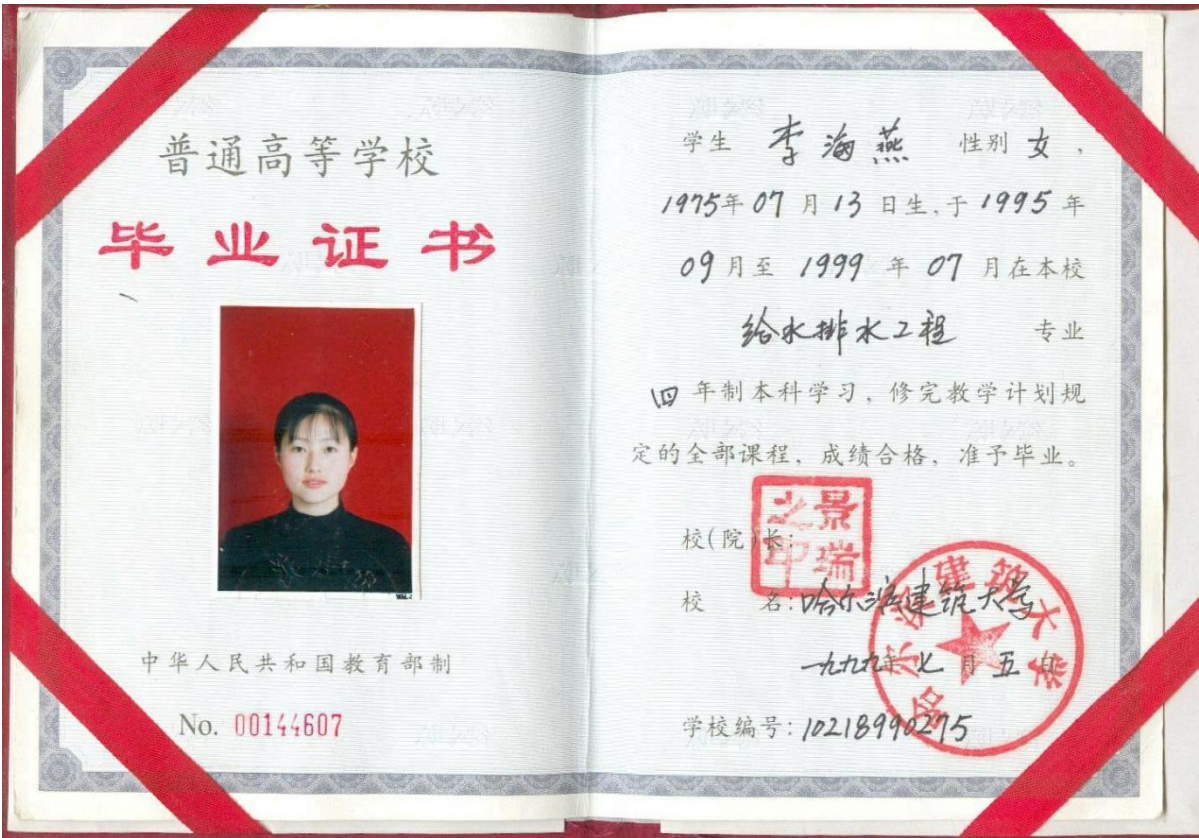 普通高等学校
毕业证书
中华人民共和国教育部制
No. 00144607
学生 李海燕 性别 女,
1975年07月13日生,于1995年
09月至1999年07月在本校
给水排水工程 专业
四年制本科学习,修完教学计划规
定的全部课程,成绩合格,准予毕业。
校(院)长:
景瑞之印
校 名:哈尔滨建筑大学
哈尔滨建筑大学
一九九九年七月五日
学校编号:10218990275